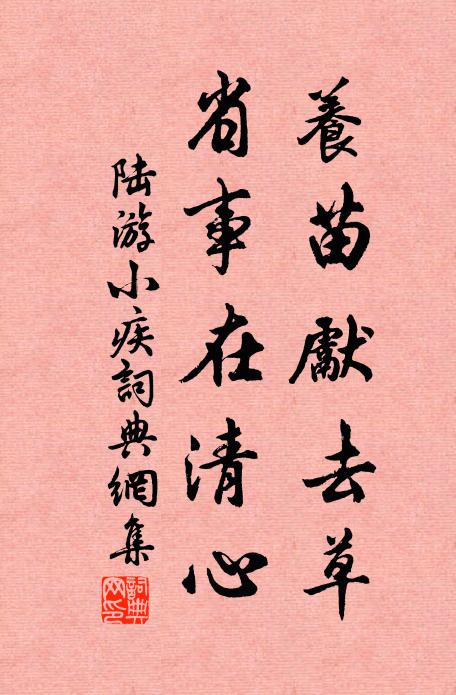 養苗獻去草
省事在清心
陆游小疾詞典網集
詞典
网印